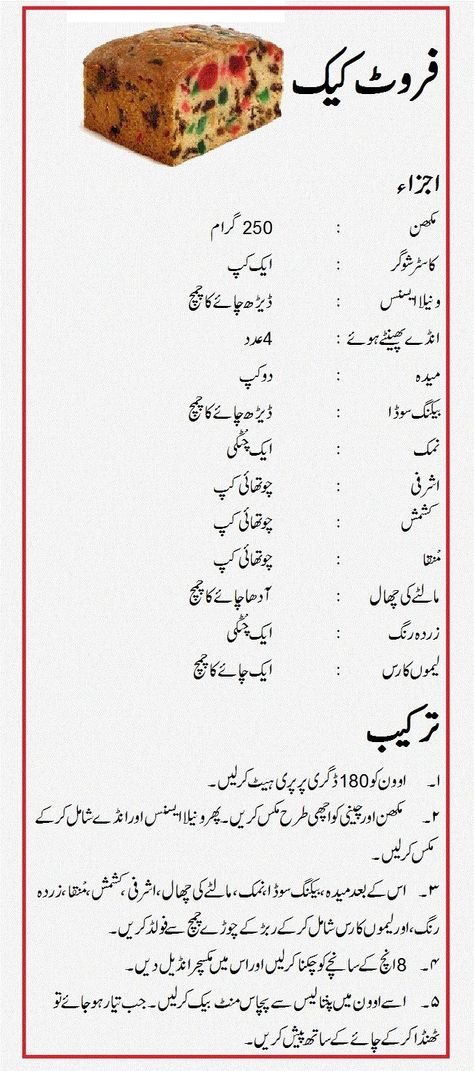 فروٹ کیک
اجزاء
مکھن : 250 گرام
کاسٹر شوگر : ایک کپ
ونیلا ایسنس : ڈیڑھ چائے کا چمچ
انڈے پھینٹے ہوئے : 4 عدد
میدہ : دو کپ
بیکنگ سوڈا : ڈیڑھ چائے کا چمچ
نمک : ایک چٹکی
اشرفی : چوتھائی کپ
کشمش : چوتھائی کپ
مُنقا : چوتھائی کپ
مالٹے کی چھال : آدھا چائے کا چمچ
زردہ رنگ : ایک چٹکی
لیموں کا رس : ایک چائے کا چمچ
ترکیب
۱۔ اوون کو 180 ڈگری پر پری ہیٹ کرلیں۔
۲۔ مکھن اور چینی کو اچھی طرح مکس کریں۔ پھر ونیلا ایسنس اور انڈے شامل کر کے
مکس کرلیں۔
۳۔ اس کے بعد میدہ، بیکنگ سوڈا، نمک، مالٹے کی چھال، اشرفی، کشمش، مُنقا، زردہ
رنگ، اور لیموں کا رس شامل کر کے ربڑ کے چوڑے چمچ سے فولڈ کریں۔
۴۔ 8 انچ کے سانچے کو چکنا کرلیں اور اس میں مکسچر انڈیل دیں۔
۵۔ اسے اوون میں پینتالیس سے پچاس منٹ بیک کرلیں۔ جب تیار ہو جائے تو
ٹھنڈا کر کے چائے کے ساتھ پیش کریں۔